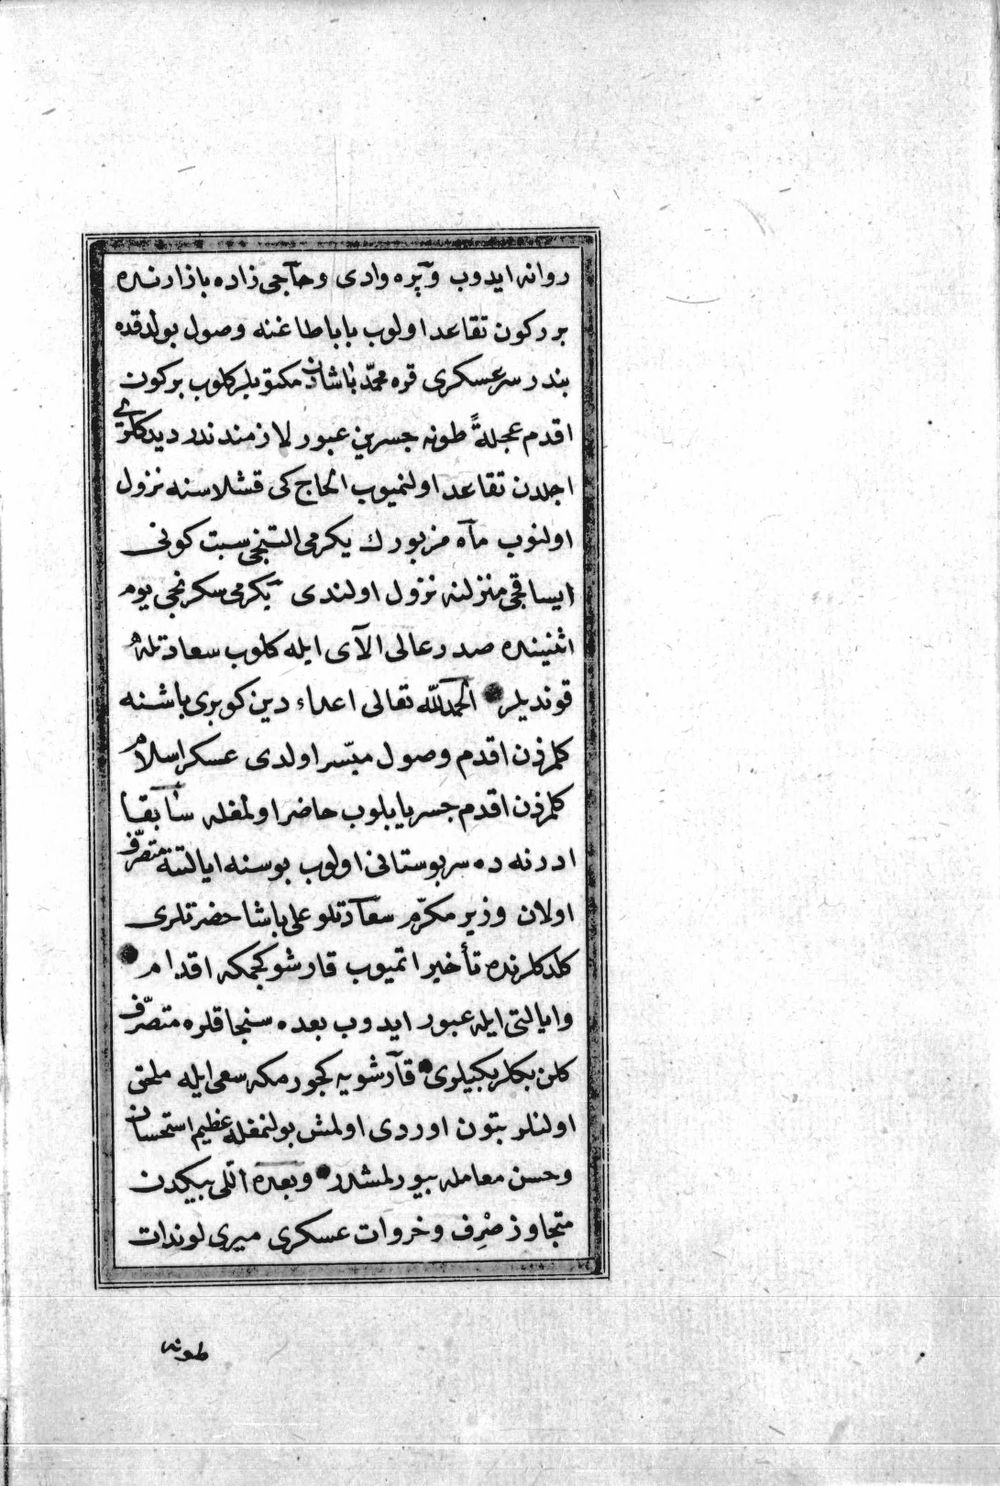 روانه ايدوب وآپره وادى وحآجى زاده بازارنده
بر ركون تقاعد اولوب باباطاغنه وصول بولدقده
بندر سرعسكرى قره محمّد پاشادن مكتوبلر كلوب بركون
اقدم عجلةً طونه جسرين عبور لازمندندر ديدكلرى
اجلدن تقاعد اولنميوب الحاج كى قشلاسنه نزول
اولنوب مآه مزبورك يكرمى التنجى سبت كونى
ايساقجى منزلنه نزول اولندى يكرمى سكزنجى يوم
اثنينده صدر عالى الآى ايله كلوب سعادتله
قونديلر الحمدلله تعالى اعداء دين كوپرى باشنه
كلمزدن اقدم وصول ميسّر اولدى عسكر اسلام
كلمزدن اقدم جسر ياپيلوب حاضر اولمغله سآبقا
ادرنه ده سربوستانى اولوب بوسنه ايالتنه متصرّف
اولان وزير مكرّم سعآدتلو على پاشا حضرتلرى
كلدكلرنده تأخير اتميوب قارشو كچمكه اقدام
وايالتى ايله عبور ايدوب بعده سنجاقلره متصرّف
كلن بكلربكيلرى قآرشويه كچورمكه سعى ايله ملحق
اولنلر بتون اوردى اولمش بولنمغله عظيم استحسان
وحسن معامله بيورلمشدر وبعده اللى بيكدن
متجاوز صْرِف وخروات عسكرى ميرى لوندات
طونه